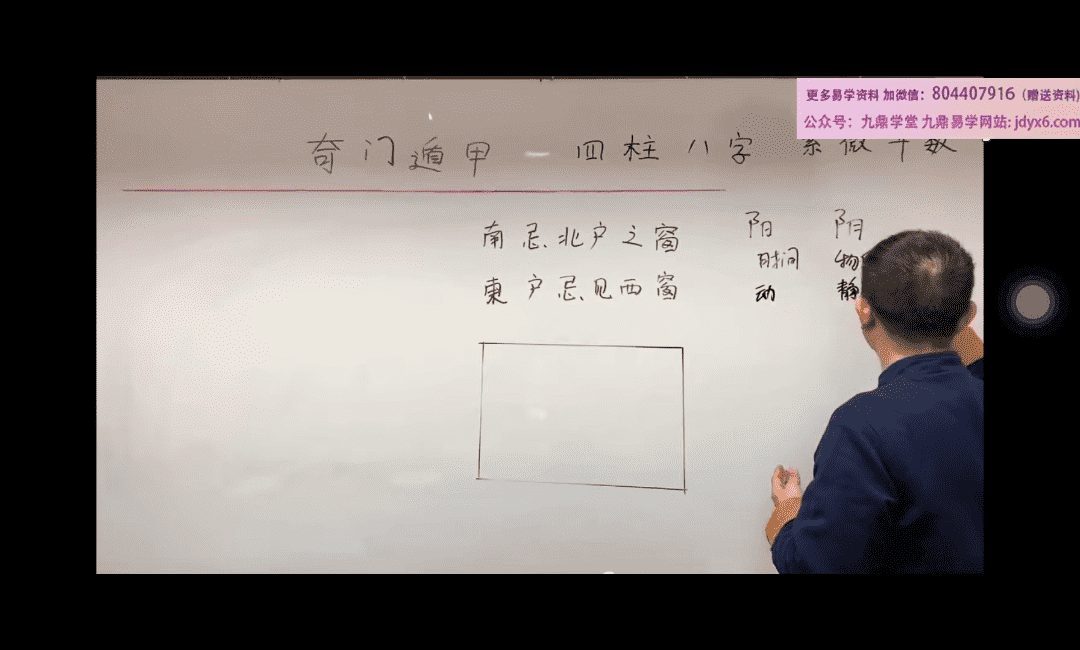 更多易学资料 加微信：804407916（赠送资料)
公众号：九鼎学堂 九鼎易学网站: jdyx6.com
奇门遁甲 — 四柱八字 紫微斗数
南忌北户之窗 阳 阴
東户忌见西窗 时间 物
动 静